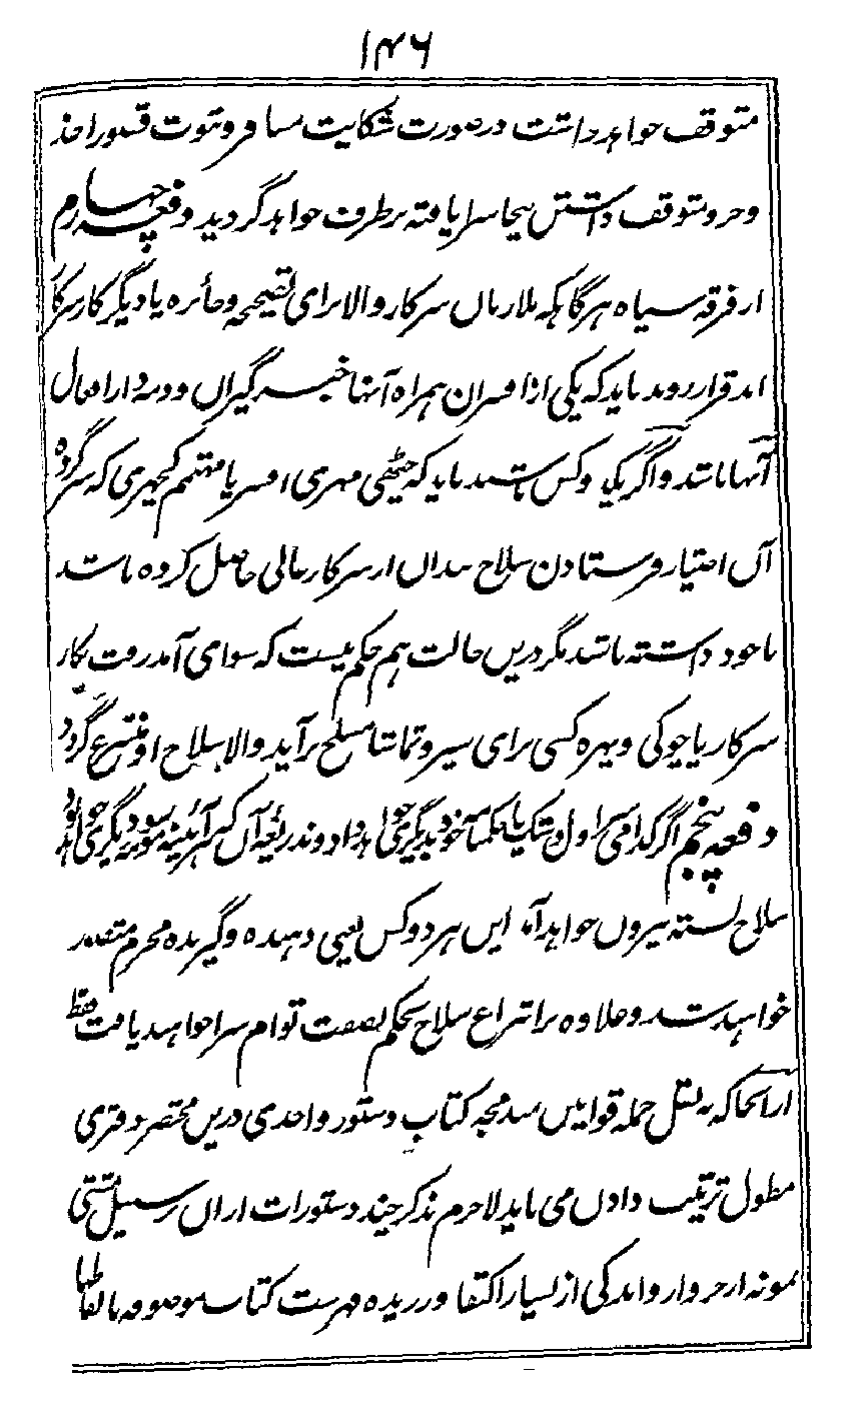 ۱۴۶
متوقف خواهد داشت در صورت شکایت مسافر و ثبوت قصور اخذ
و جر و متوقف داشتن بیجا سزا یافته برطرف خواهد گردید دفعه چهارم
از فرقه سپاه هرگاهیکه ملازمان سرکار والا برای تصحیحه و دائره یا دیگر کار سرکار
قرار روند باید که یکی از افسران همراه آنها خبر گیران و ذمه دار افعال
آنها باشد و اگر یک دو کس باشند باید که چٹهی مهری افسر یا مهتمم کچهری که سرکرده
آں اختیار فرستادن سلاح بنداں از سرکار عالی حاصل کرده باشد
با خود داشته باشند مگر دریں حالت هم حکم نیست که سوای آمد رفت بکار
سرکار یا چوکی و پهره کسی برای سیر و تماشا مسلح برآید والا سلاح او منتزع گردد
دفعه پنجم اگر کدامی اول تک یا خود بدیگری خواهد داد و بذریعه آں
سلاح بسته بیروں خواهد آمد ایں هر دو کس یعنی دهنده و گیرنده مجرم متصور
خواهند شد و علاوه بر انتزاع سلاح بحکم نصفت توام سزا خواهند یافت فقط
از آنجا که به نقل جمله قوانیں کتاب دستور واحدی دریں مختصر دفتری
مطول ترتیب دادں می باید لاجرم بذکر چند دستورات ازاں بر سبیل مشتی
نمونه از خروار و اندکی از بسیار اکتفا ورزیده فهرست کتاب موصوفه بالفاظها